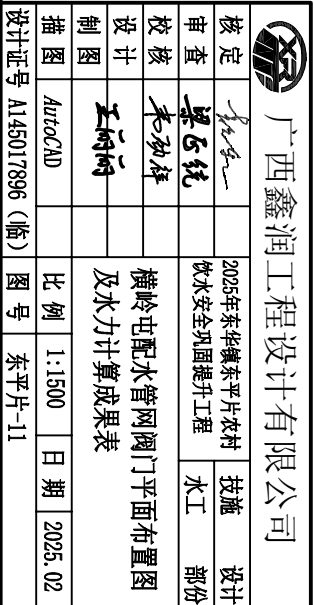 广西鑫润工程设计有限公司
核定
2025年东华镇东平片农村
饮水安全巩固提升工程
技施 设计
水工 部份
审查 梁正统
校核 韦劲祥
设计
横岭屯配水管网阀门平面布置图
及水力计算成果表
制图 王丽丽
描图 AutoCAD
比例 1:1500 日期 2025.02
设计证号 A145017896(临) 图号 东平片-11